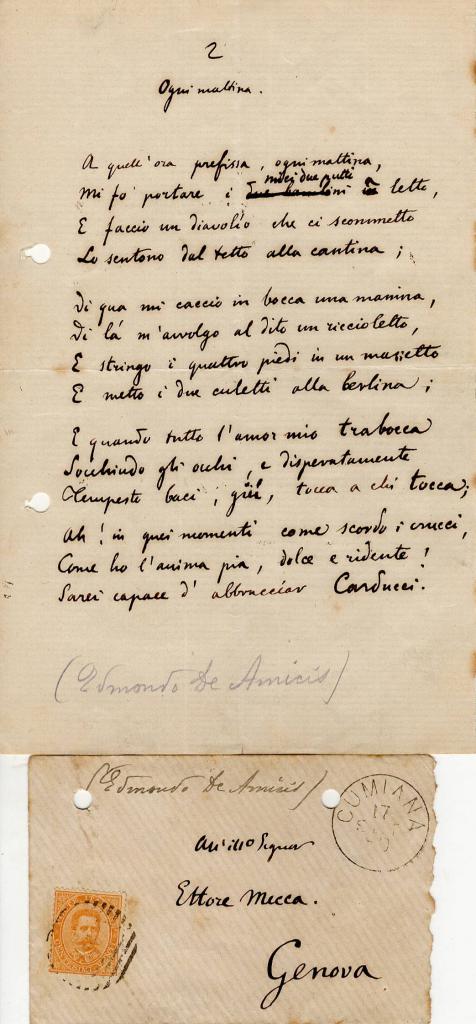 2
Ogni mattina.
A quell'ora prefissa, ogni mattina,
miei due putti
Mi fo' portare i due bambini in letto,
E faccio un diavolìo che ci scommetto
Lo sentono dal tetto alla cantina;
Di qua mi caccio in bocca una manina,
Di là m'avvolgo al dito un riccioletto,
E stringo i quattro piedi in un mazzetto
E metto i due culetti alla berlina;
E quando tutto l'amor mio trabocca
Socchiudo gli occhi, e disperatamente
Tempesto baci, giù, tocca a chi tocca;
Ah! in quei momenti come scordo i crucci,
Come ho l'anima pia, dolce e ridente!
Sarei capace d'abbracciar Carducci.
(Edmondo De Amicis)
(Edmondo De Amicis)
CUMIANA
17
All'illo Signor
Ettore Mecca.
Genova